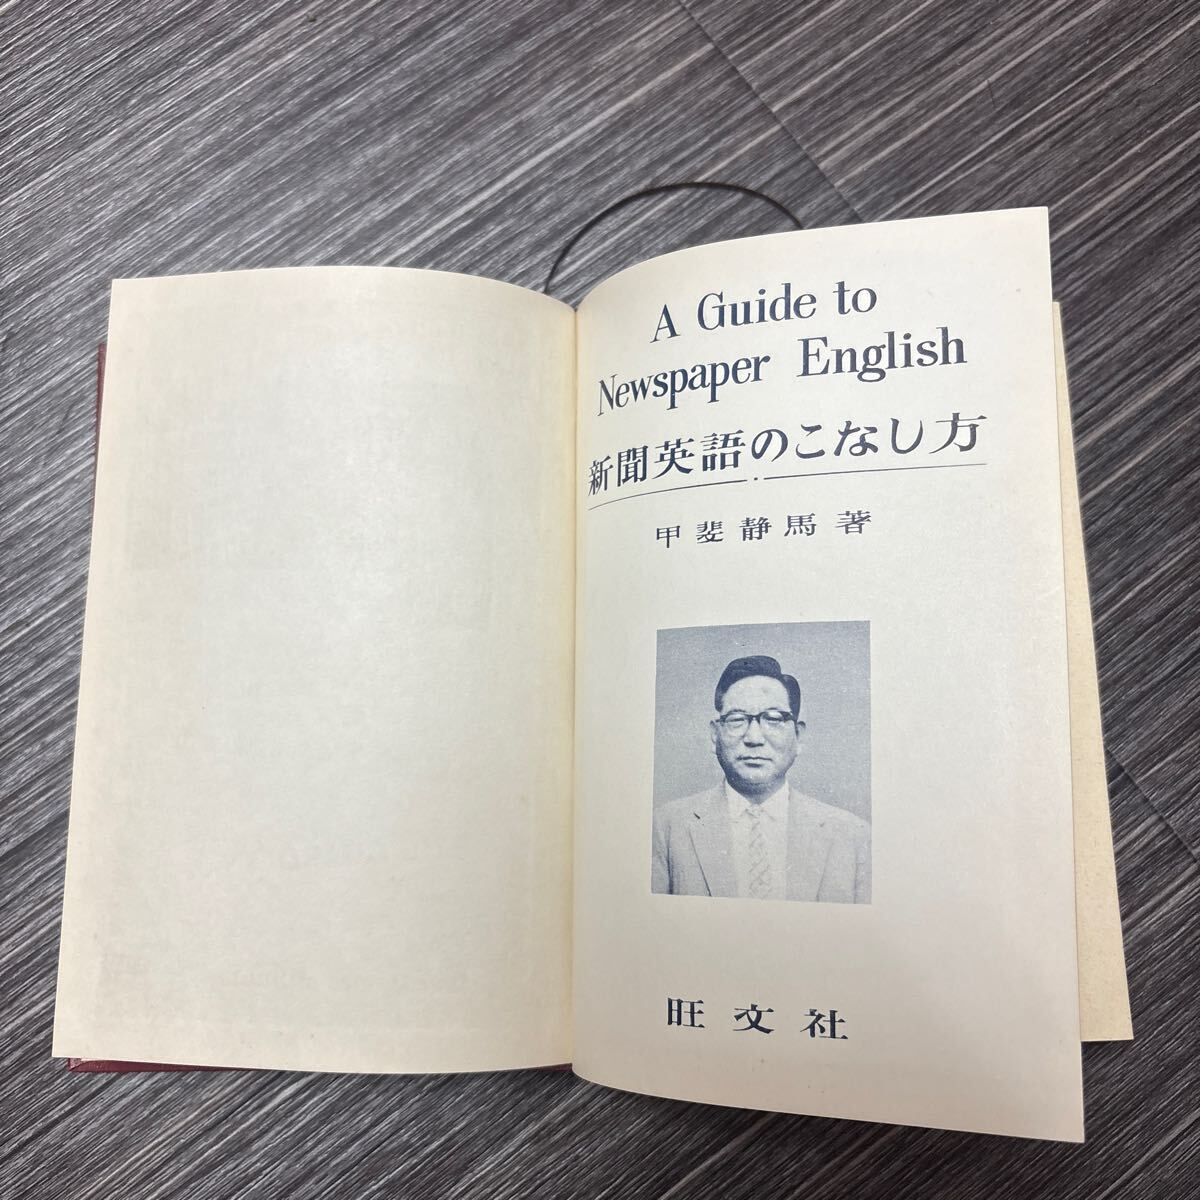 A Guide to
Newspaper English
新聞英語のこなし方
甲斐静馬著
旺文社